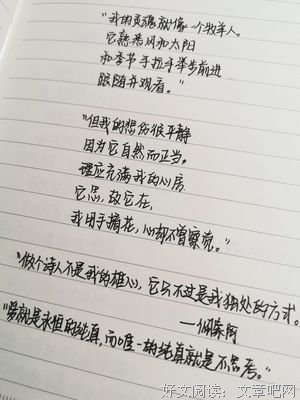 "我的灵魂就像一个牧羊人。
它熟悉风和太阳
和季节手拉手举步前进
跟随并观看。"
"但我的悲伤很平静
因为它自然而正当。
理应充满我的心房
它思,故它在,
我用手摘花,心却不曾察觉。"
"做个诗人不是我的雄心,它只不过是我独处的方式。
—佩索阿
"爱就是永恒的纯真,而唯一的纯真就是不思考。"
好文阅读:文章吧网